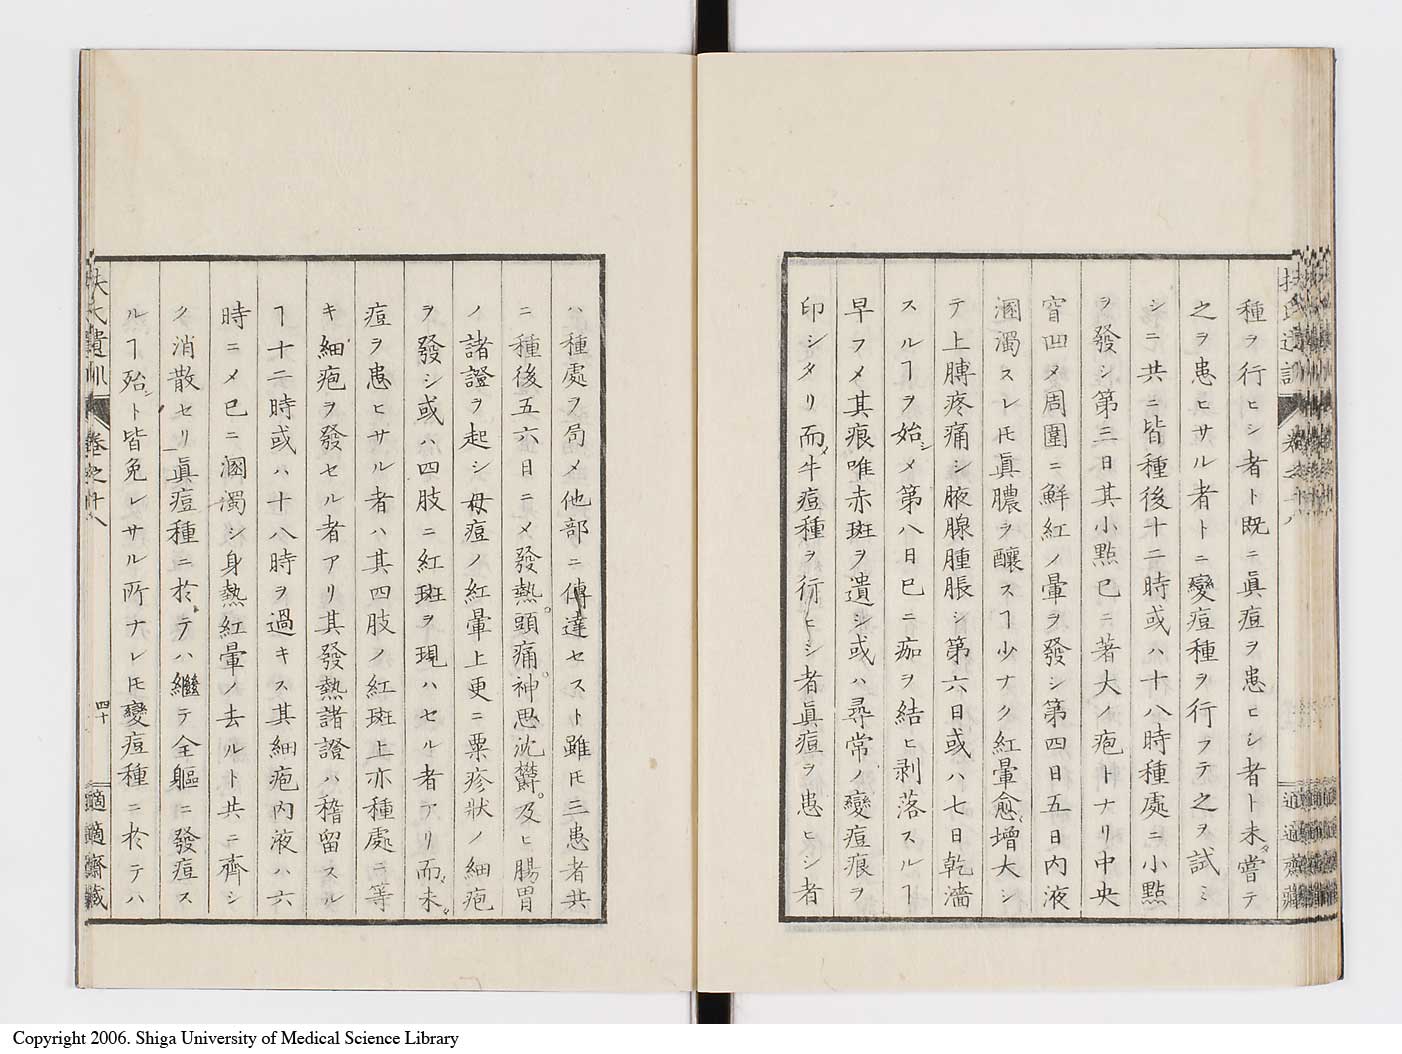 種ヲ行ヒシ者ト既ニ眞痘ヲ患ヒシ者ト未タ嘗テ
之ヲ患ヒサル者トニ變痘種ヲ行フテ之ヲ試ミ
シニ共ニ皆種後十二時或ハ十八時種處ニ小點
ヲ發シ第三日其小點已ニ著大ノ疱トナリ中央
窅凹メ周圍ニ鮮紅ノ暈ヲ發シ第四日五日内液
溷濁スレ𪜈眞膿ヲ釀スヿ少ナク紅暈愈增大シ
テ上膊疼痛シ腋腺腫脹シ第六日或ハ七日乾濇
スルヿヲ始シメ第八日已ニ痂ヲ結ヒ剥落スルヿ
早フメ其痕唯赤斑ヲ遺シ或ハ尋常ノ變痘痕ヲ
印シタリ而メ牛痘種ヲ行ヒシ者眞痘ヲ患ヒシ者
ハ種處ヲ局メ他部ニ傳達セスト雖𪜈三患者共
ニ種後五六日ニメ發熱。頭痛。神思沈欝。及ヒ腸胃
ノ諸證ヲ起シ母痘ノ紅暈上更ニ粟疹狀ノ細疱
ヲ發シ或ハ四肢ニ紅斑ヲ現ハセル者アリ而メ未タ
痘ヲ患ヒサル者ハ其四肢ノ紅斑上亦種處ニ等
キ細疱ヲ發セル者アリ其發熱諸證ハ稽留スル
ヿ十二時或ハ十八時ヲ過キス其細疱内液ハ六
時ニメ已ニ溷濁シ身熱紅暈ノ去ルト共ニ齊シ
ク消散セリ眞痘種ニ於テハ繼テ全軀ニ發痘ス
ルヿ殆シト皆免レサル所ナレ𪜈變痘種ニ於テハ
扶氏遺訓
卷之十八
四十
適適齋藏
Copyright 2006. Shiga University of Medical Science Library